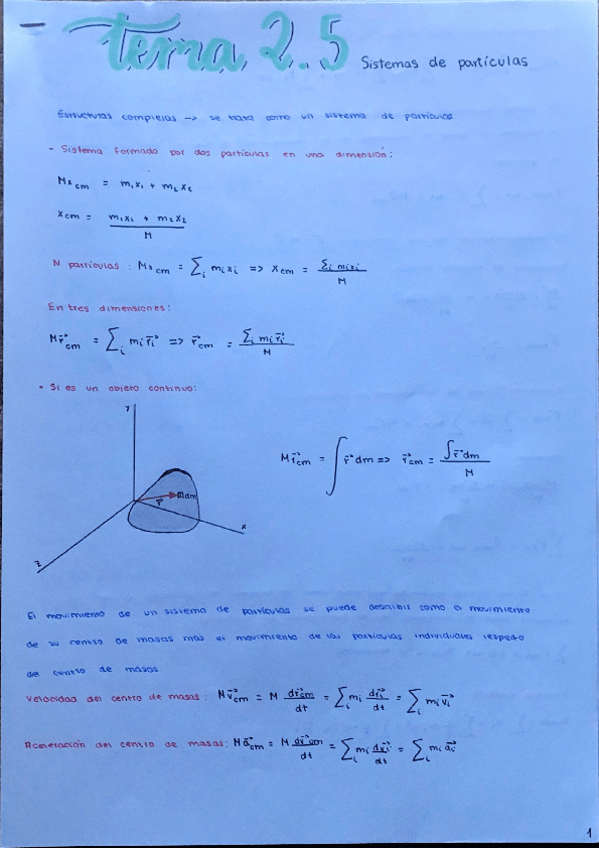 tema 2.5 Sistemas de partículas
Estructuras complejas -> se trata como un sistema de partículas
- Sistema formado por dos partículas en una dimensión:
Mx_cm = m₁x₁ + m₂x₂
x_cm = (m₁x₁ + m₂x₂) / M
N partículas : Mx_cm = Σ_i m_i x_i => x_cm = Σ_i m_i x_i / M
En tres dimensiones:
M r⃗_cm = Σ_i m_i r⃗_i => r⃗_cm = Σ_i m_i r⃗_i / M
- Si es un objeto continuo:
Y
M r⃗_cm = ∫ r⃗ dm => r⃗_cm = ∫ r⃗ dm / M
dm
r⃗
X
Z
El movimiento de un sistema de partículas se puede describir como el movimiento
de su centro de masas más el movimiento de las partículas individuales respecto
del centro de masas
Velocidad del centro de masas : M v⃗_cm = M dr⃗_cm/dt = Σ_i m_i dr⃗_i/dt = Σ_i m_i v⃗_i
Aceleración del centro de masas: M a⃗_cm = M dv⃗_cm/dt = Σ_i m_i dv⃗_i/dt = Σ_i m_i a⃗_i
1